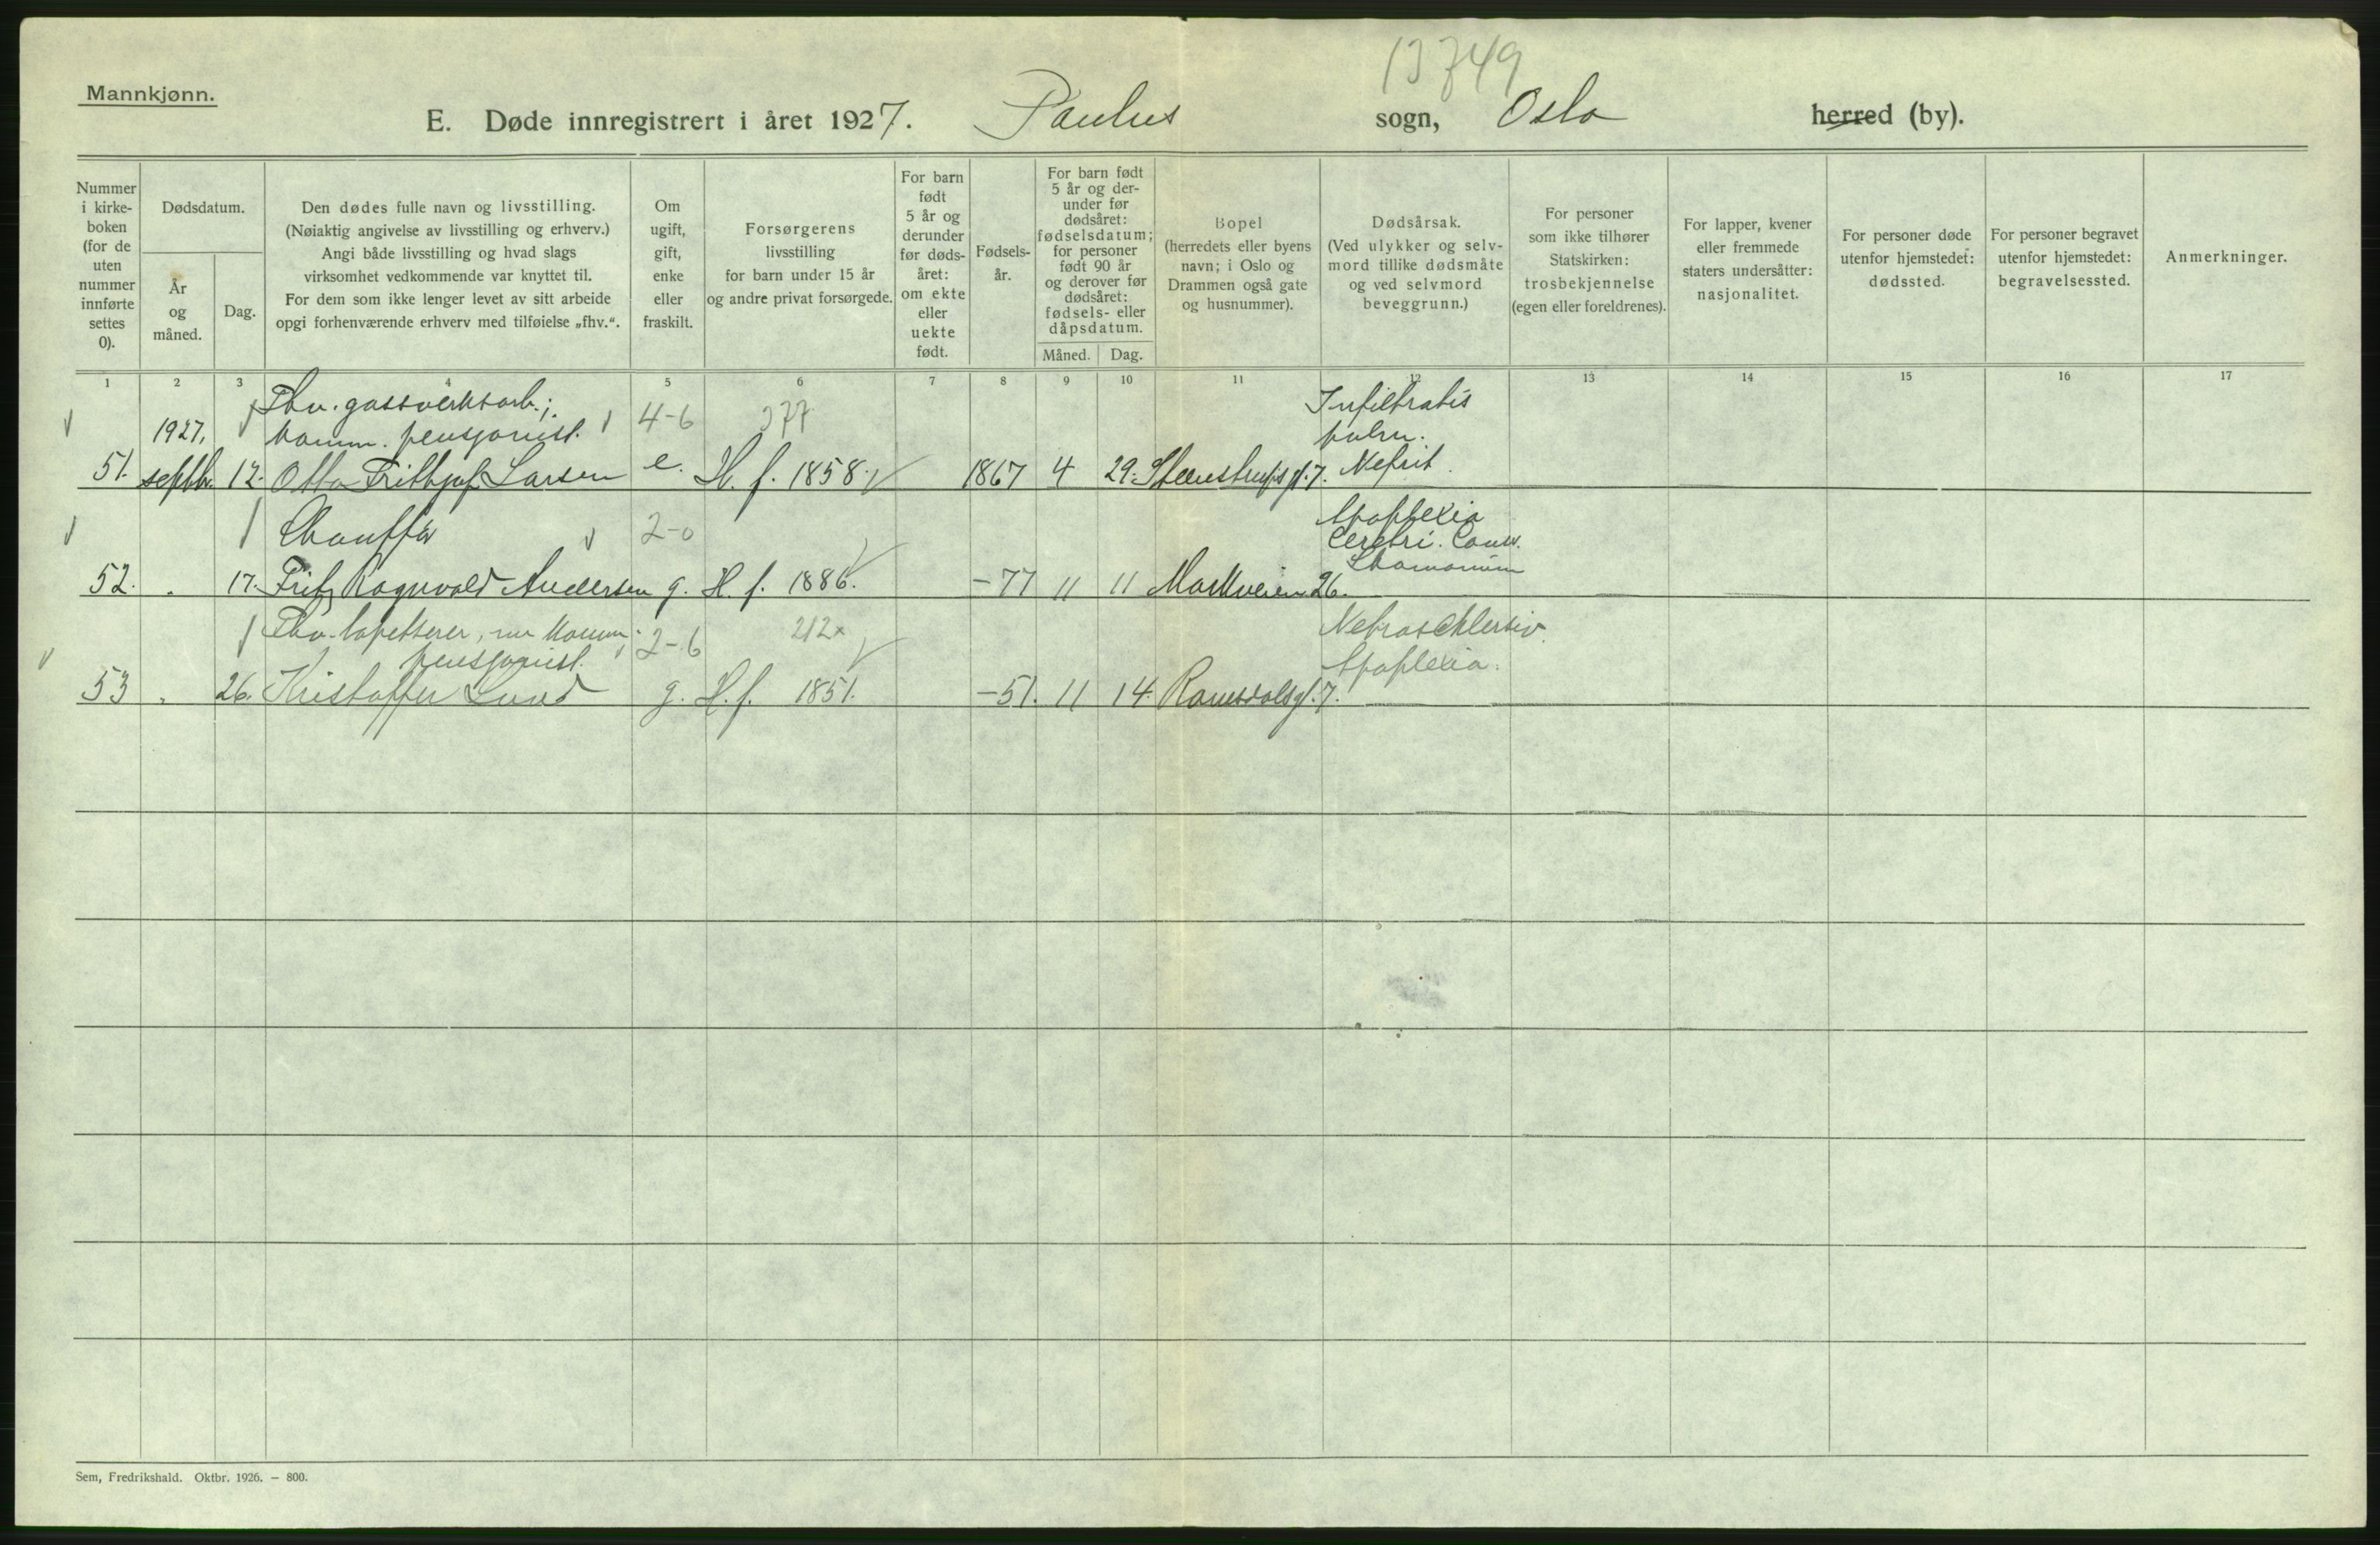 13749
Mannkjønn.
E. Døde innregistrert i året 1927. Paulus sogn, Oslo herred (by).
Nummer i kirke- boken (for de uten nummer innførte settes 0).
Dødsdatum.
År og måned.
Dag.
Den dødes fulle navn og livsstilling.
(Nøiaktig angivelse av livsstilling og erhverv.)
Angi både livsstilling og hvad slags
virksomhet vedkommende var knyttet til.
For dem som ikke lenger levet av sitt arbeide
opgi forhenværende erhverv med tilføielse „fhv.“.
Om ugift, gift, enke eller fraskilt.
Forsørgerens
livsstilling
for barn under 15 år
og andre privat forsørgede.
For barn født 5 år og derunder før døds- året: om ekte eller uekte født.
Fødsels- år.
For barn født 5 år og der- under før dødsåret: fødselsdatum; for personer født 90 år og derover før dødsåret: fødsels- eller dåpsdatum.
Måned.
Dag.
Bopel
(herredets eller byens
navn; i Oslo og
Drammen også gate
og husnummer).
Dødsårsak.
(Ved ulykker og selv-
mord tillike dødsmåte
og ved selvmord
beveggrunn.)
For personer
som ikke tilhører
Statskirken:
trosbekjennelse
(egen eller foreldrenes).
For lapper, kvener
eller fremmede
staters undersåtter:
nasjonalitet.
For personer døde
utenfor hjemstedet:
dødssted.
For personer begravet
utenfor hjemstedet:
begravelsessted.
Anmerkninger.
1 2 3 4 5 6 7 8 9 10 11 12 13 14 15 16 17
Fhv. gassverksarb.; Infiltratis
1927. komm. pensjonist. 4-6 377 pulm.
51. septbr. 12. Otto Frithjof Larsen e. H. f. 1858. 1867 4 29. Steenstrupsgt. 7. Nefrit.
Chauffør 2-0 Apoplexia
Cerebri.
52. " 17. Fritz Ragnvald Andersen g. H. f. 1886. -77 11 11 Markveien 26.
Fhv. tapetserer, nu komm. 2-6 212x
pensjonist. Apoplexia.
53 " 26. Kristoffer Lund g. H. f. 1851. -51. 11 14. Romsdalsgt. 7.
Sem, Fredrikshald. Oktbr. 1926. — 800.